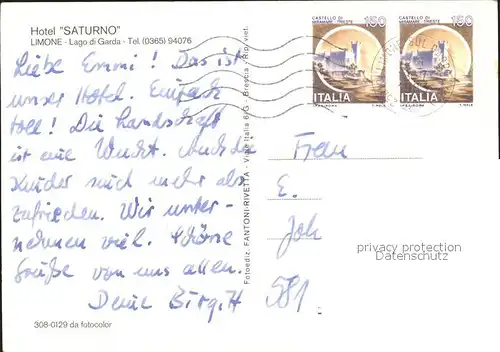 Hotel "SATURNO"
LIMONE - Lago di Garda - Tel. (0365) 94076
Liebe Emmi! Das ist
unser Hotel. Einfach
toll! Die Landschaft
ist eine Wucht. Auch die
Kinder sind mehr als
zufrieden. Wir unter-
nehmen viel. Schöne
Grüße von uns allen.
Deine Birgit
308-0129 da fotocolor
Fotoediz. FANTONI-RIVETTA - Viale Italia 6/G - Brescia - Rip. viet.
CASTELLO DI
MIRAMARE TRIESTE
160
ITALIA
CASTELLO DI
MIRAMARE TRIESTE
160
ITALIA
Frau
E.
Joh
581
privacy protection
Datenschutz